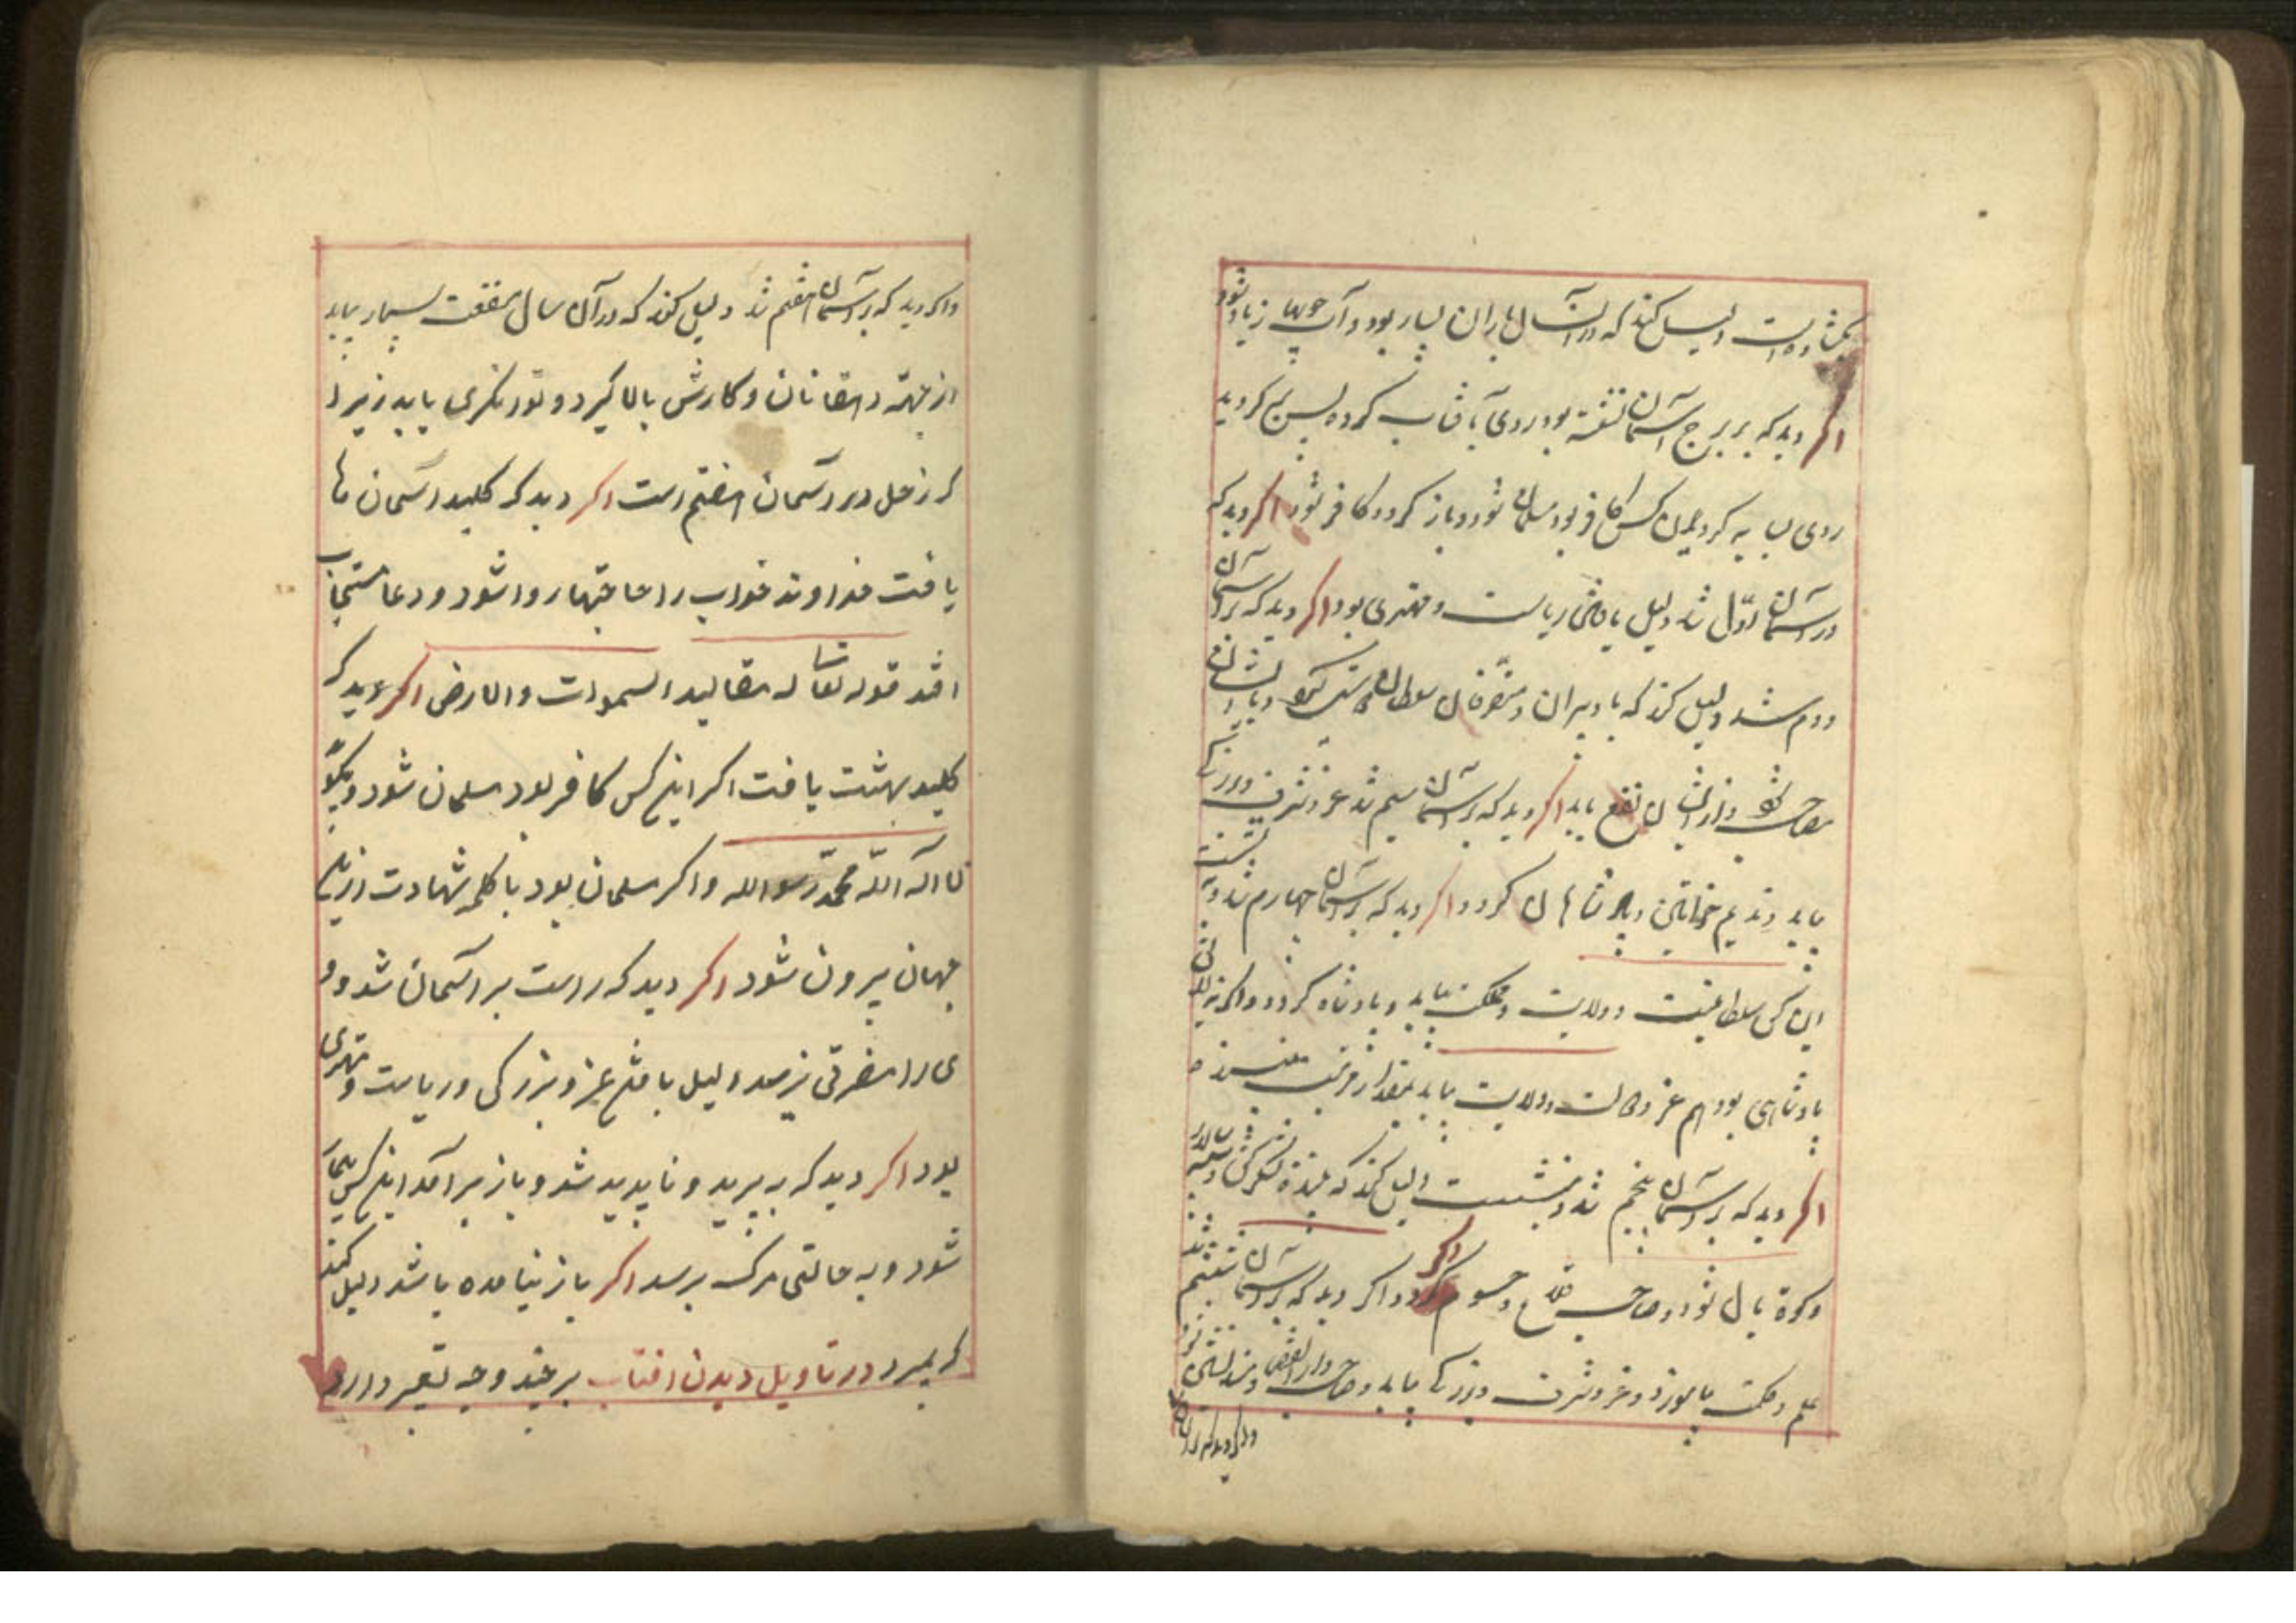 بکشاده است دلیل کند که در آن سال باران بسیار بود و آب جویها زیاد شود
اکر دید که بر برج آسمان نشسته بود روی بآفتاب کرده پس
روی سیاه کس کافر بود مسلمان شود و باز کردد کافر شود اکر دید که
در آسمان اوّل شد دلیل یافتن ریاست و مهتری بود اکر دید که بر آسمان
دوم شد دلیل کند که با دبیران و متصرفان سلطان و با ایشان
مصاحب شود و از ایشان نفع یابد اکر دید که بر آسمان سیم شد عز و شرف و بزرکی
یابد و ندیم خواتین و شاهان کردد اکر دید که بر آسمان چهارم شد و
این کس سلطنت و ولایت و مملکت بیابد و پادشاه کردد و اکر نه
پادشاهی بود هم عز و ولایت یابد بمقدار
اکر دید که بر آسمان پنجم شد و بنشست دلیل کند که لشکرکش و
شود و صاحب سلاح و حسوم کردد اکر دید که بر آسمان ششم شد
علم و حکمت بیاموزد و عز و شرف و بزرکی یابد و صاحب
و اکر دید که بر آسمان
و اکر دید که بر آسمان هفتم شد دلیل کند که در آن سال منفعت بسیار یابد
از جهة دهقانان و کارش بالا کیرد و توزنکری یابد زیرا
که زحل در آسمان هفتم است اکر دید که کلید آسمان ها
یافت خداوند خواب را حاجتها روا شود و دعا مستجاب
افتد قوله تعالی له مقالید السموات والارض اکر دید که
کلید بهشت یافت اکر این کس کافر بود مسلمان شود و بکوید
لا اله الّا اللّه محمّد رسول الله و اکر مسلمان بود با کلمه شهادت ازین
جهان بیرون شود اکر دید که راست بر آسمان شد و و
ی را مضرتی نرسد دلیل یافتن عز و بزرکی و ریاست و مهتری
بود اکر دید که بپرید و ناپدید شد و باز بر آمد این کس بیمار
شود و به حالتی مرک برسد اکر باز نیامده باشد دلیل کند
که بمیرد در تاویل دیدن افتاب بر چند وجه تعبیر دارد